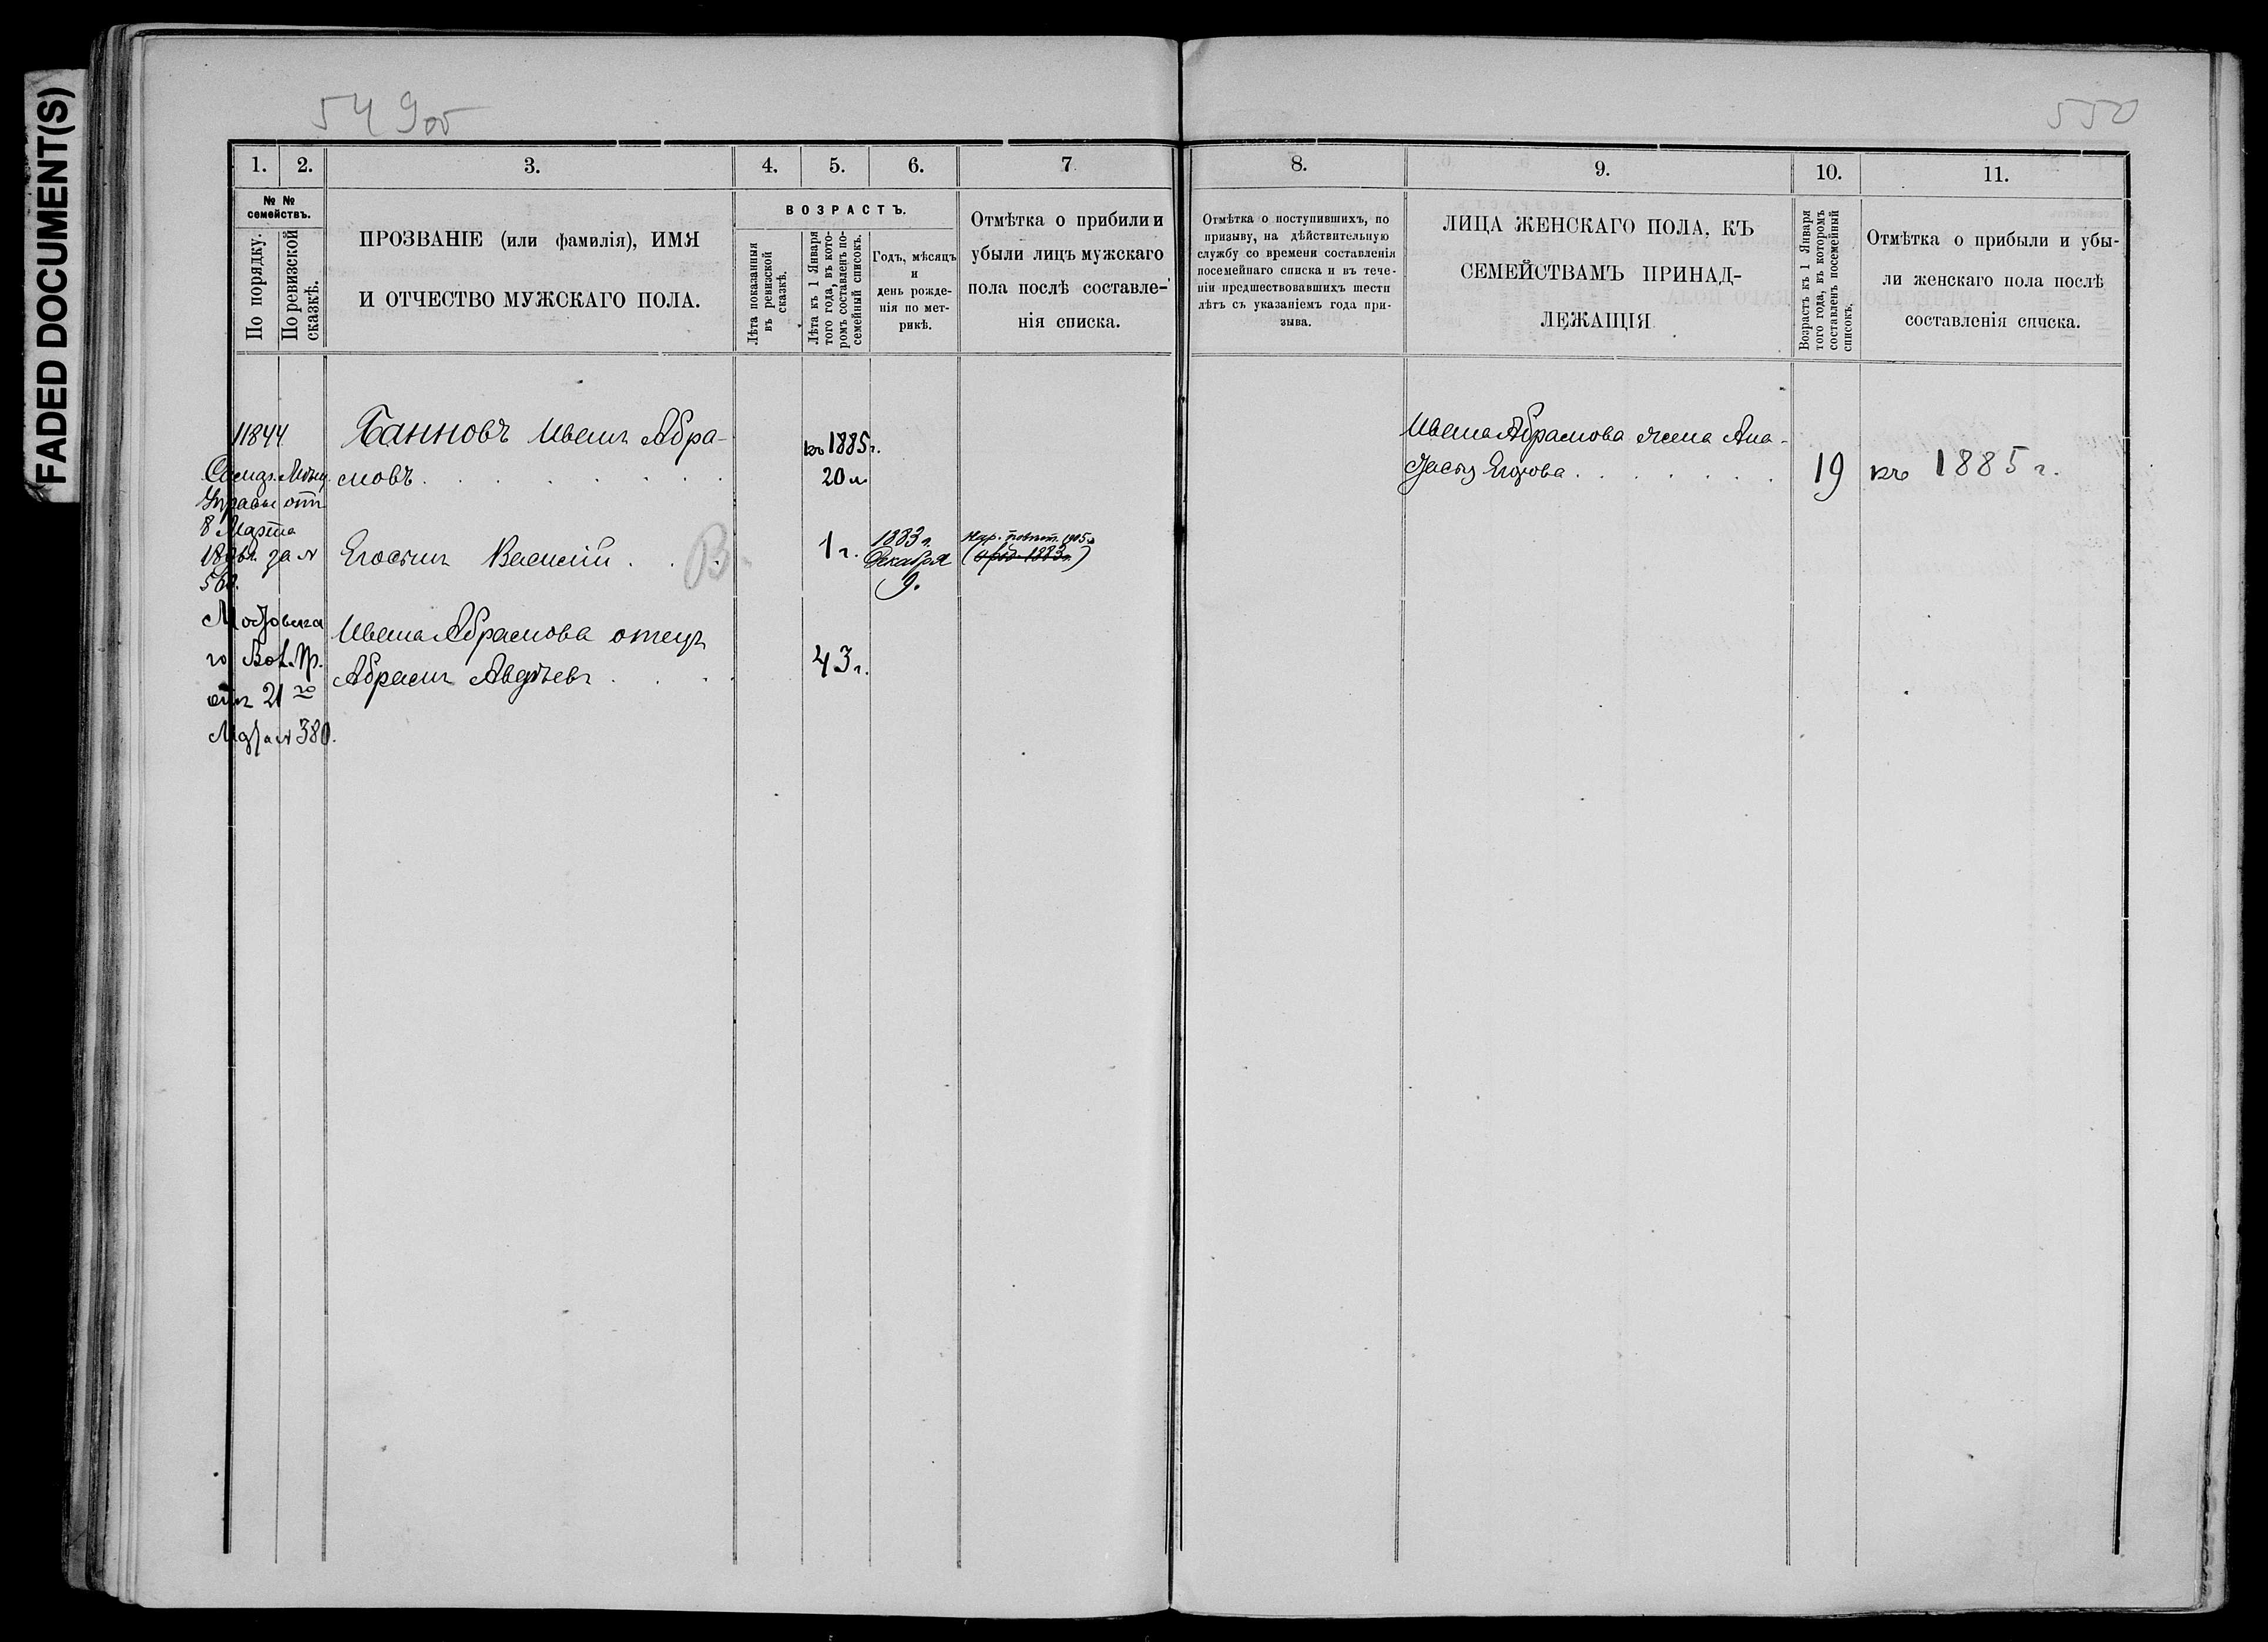 FADED DOCUMENT(S)
549об
550
1.
2.
3.
4.
5.
6.
7
8.
9.
10.
11.
№ №
семействъ.
По порядку.
По ревизской
сказкѣ.
ПРОЗВАНІЕ (или фамилія), ИМЯ
И ОТЧЕСТВО МУЖСКАГО ПОЛА.
ВОЗРАСТЪ.
Лѣта показанныя
въ ревизской
сказкѣ.
Лѣта къ 1 Января
того года, въ кото-
ромъ составленъ по-
семейный списокъ.
Годъ, мѣсяцъ
и
день рожде-
нія по мет-
рикѣ.
Отмѣтка о прибили и
убыли лицъ мужскаго
пола послѣ составле-
нія списка.
Отмѣтка о поступившихъ, по
призыву, на дѣйствительную
службу со времени составленія
посемейнаго списка и въ тече-
ніи предшествовавшихъ шести
лѣтъ съ указаніемъ года при-
зыва.
ЛИЦА ЖЕНСКАГО ПОЛА, КЪ
СЕМЕЙСТВАМЪ ПРИНАД-
ЛЕЖАЩІЯ
Возрастъ къ 1 Января
того года, въ которомъ
составленъ посемейный
списокъ.
Отмѣтка о прибыли и убы-
ли женскаго пола послѣ
составленія списка.
11844
Мѣщ.
Управы отъ
8 Марта
за №
560.
Вол. Пр.
отъ 21 го
№ 380.
Банновъ Иванъ Абра-
мовъ
къ 1885 г.
20 л
Его сынъ Василій
В.
1 г.
1883 г.
Декабря
9.
1905
1883
Ивана Абрамова отецъ
Абрамъ Авдѣевъ
43 г.
Ивана Абрамова жена Ана-
Егорова
19
къ 1885 г.